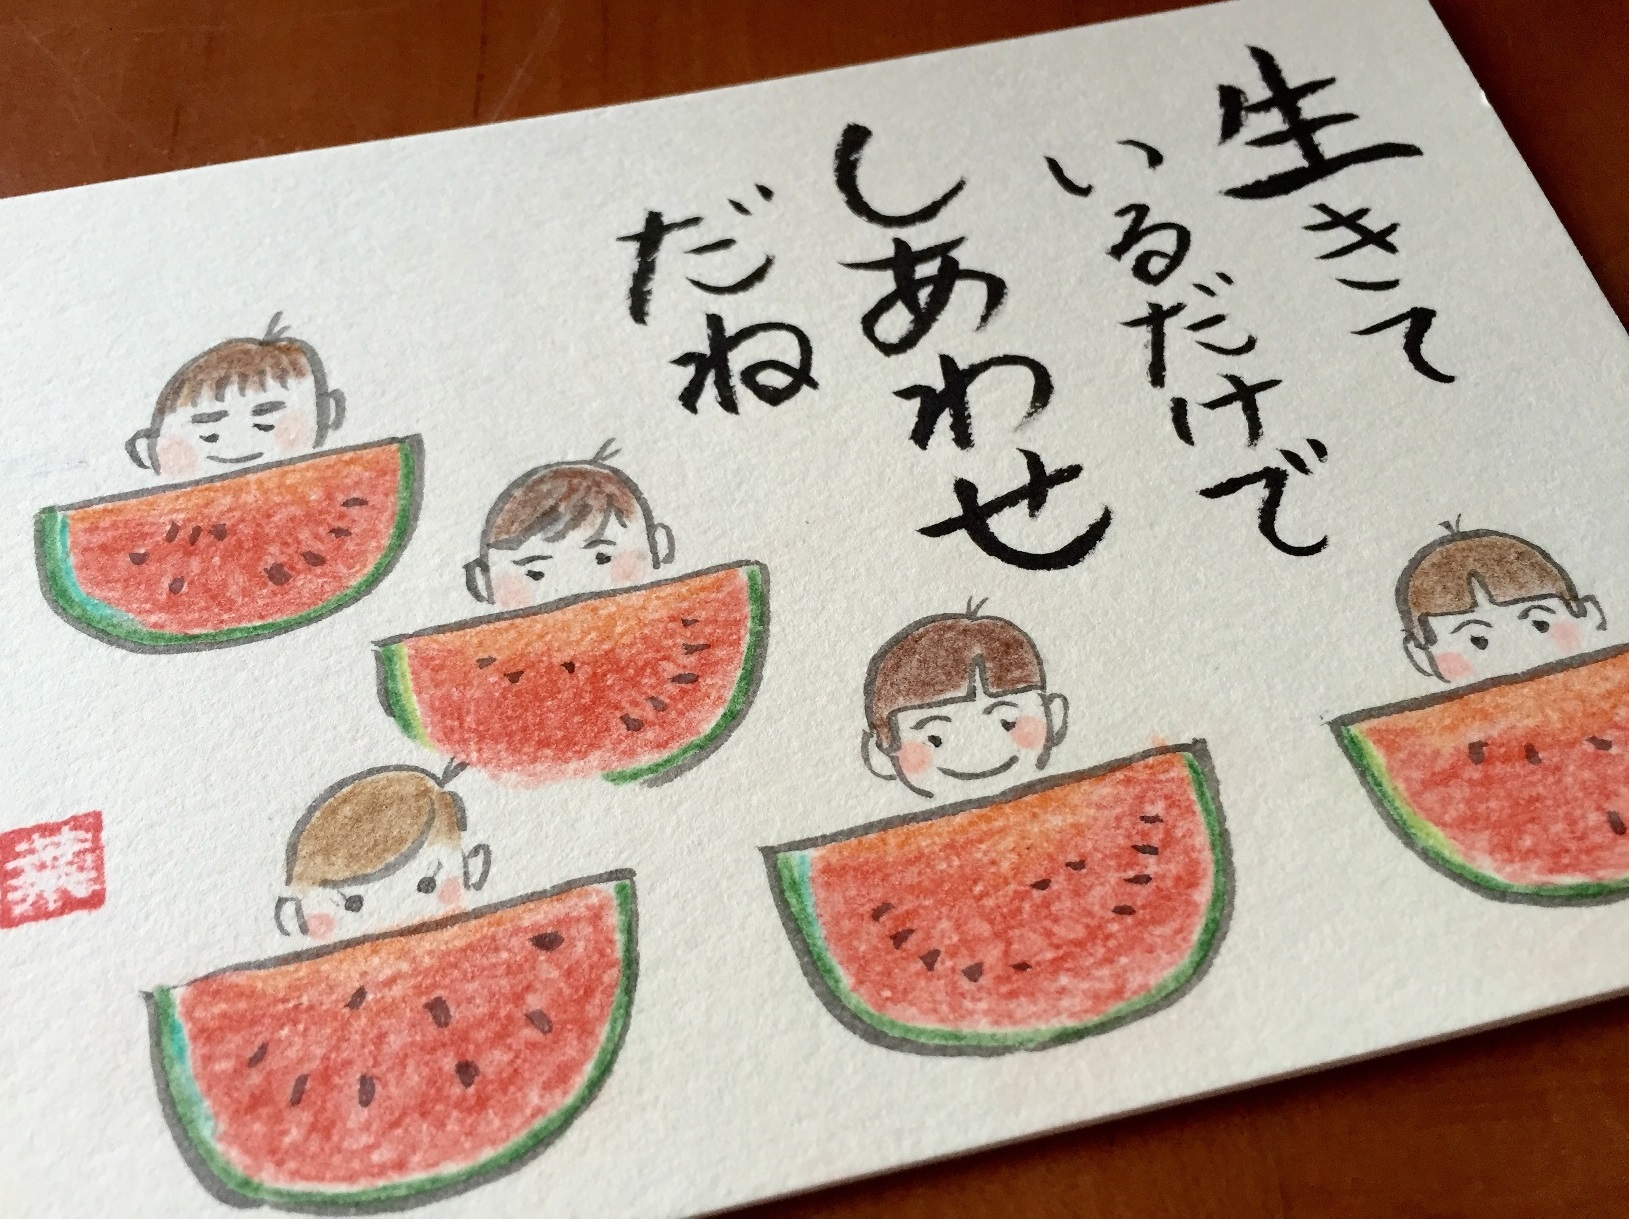 生きて
いるだけで
しあわせ
だね
葉